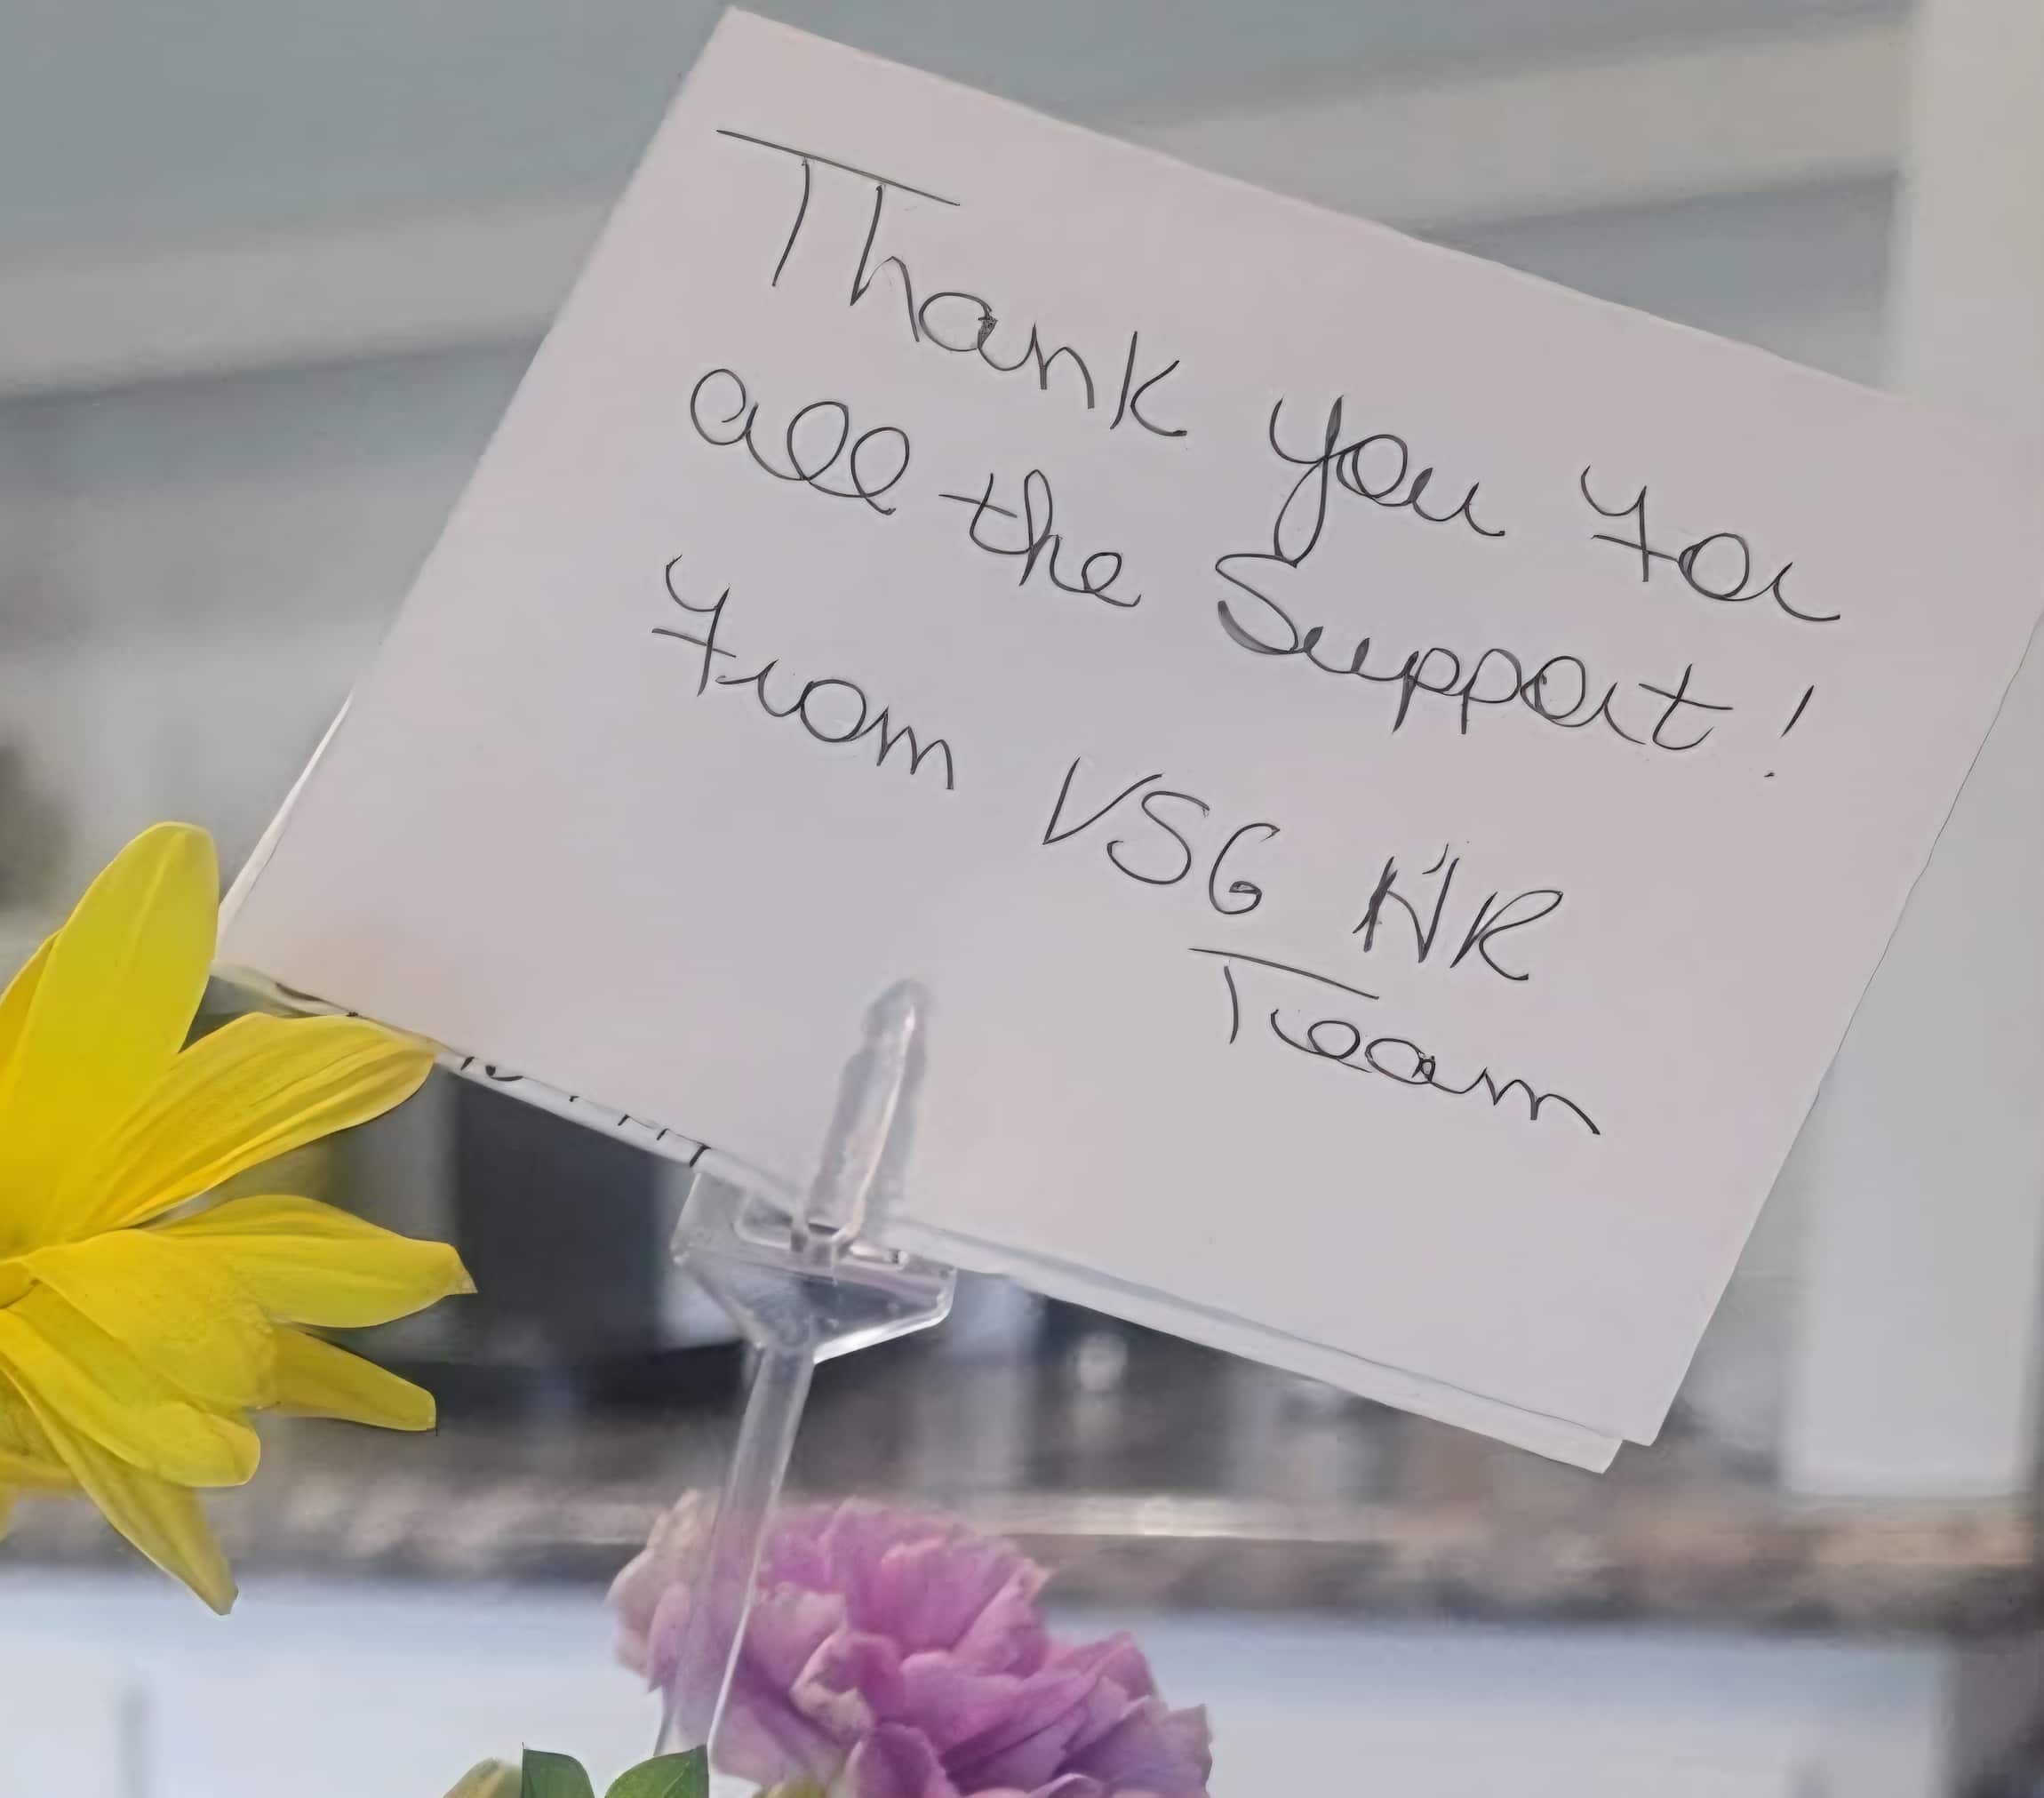 Thank you for
all the Support!
From VSG HR
Team